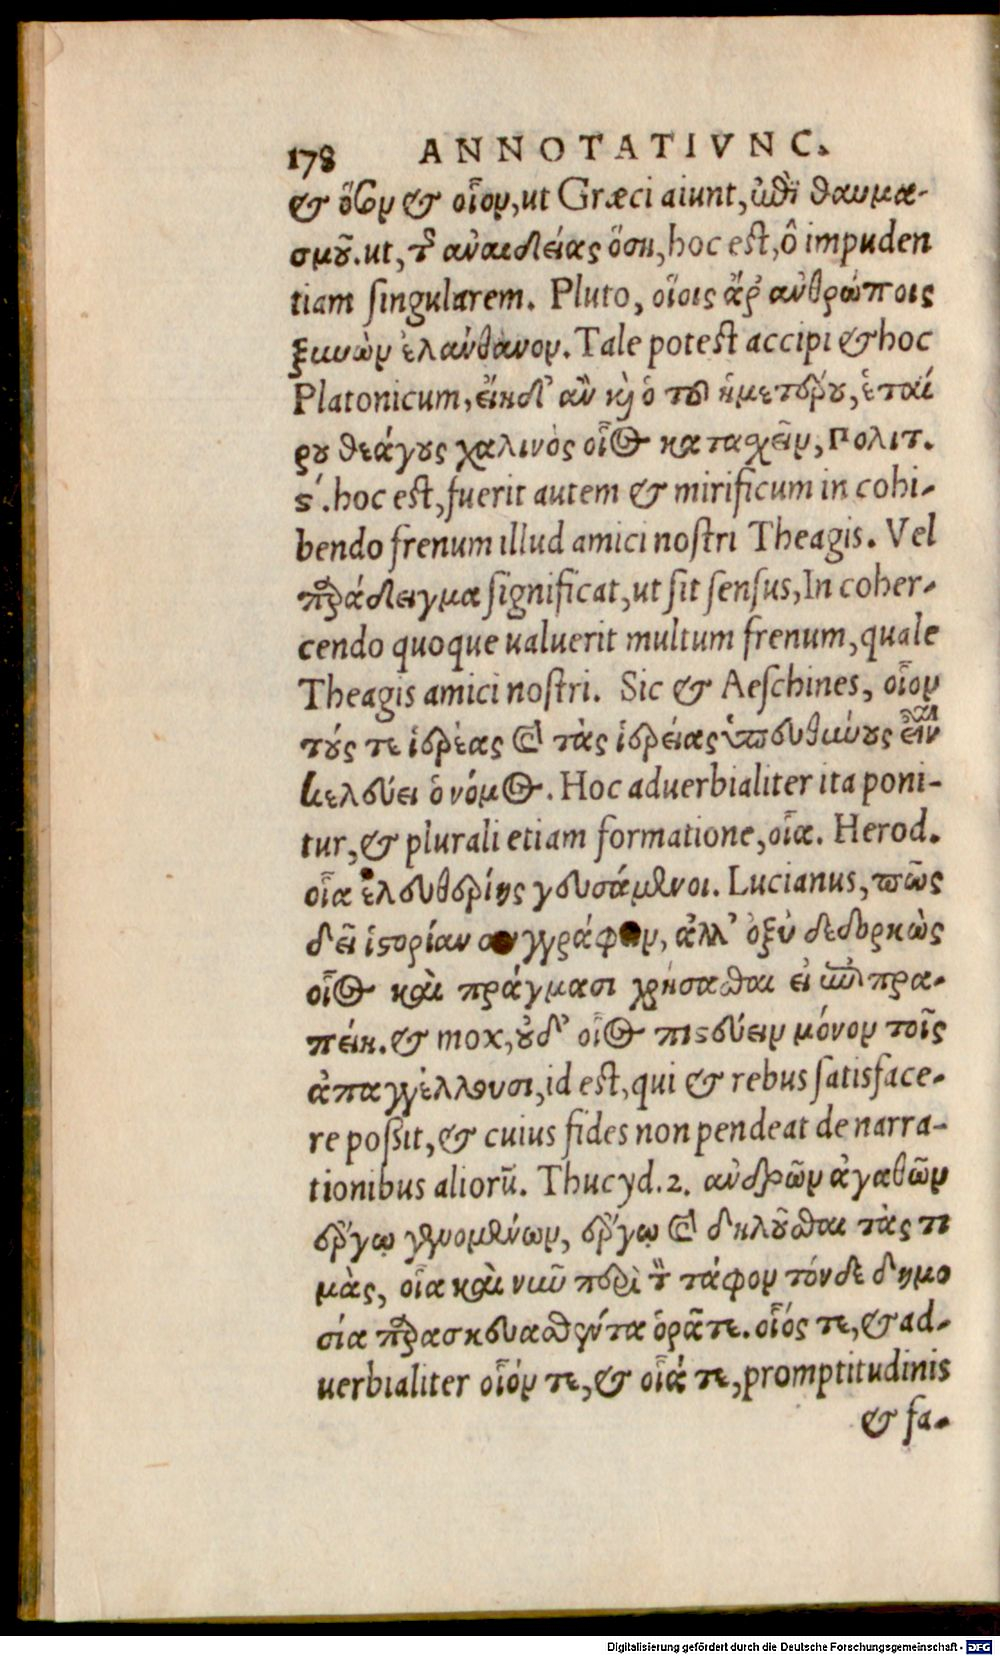 178 ANNOTATIVNC.
& ὅσον & οἷον, ut Græci aiunt, ἐπὶ θαυμα-
σμοῦ. ut, τῆς ἀναιδείας ὅση, hoc est, ô impuden
tiam singularem. Pluto, οἵοις ἄρ' ἀνθρώποις
ξυνὼν ἐλάνθανον. Tale potest accipi & hoc
Platonicum, εἴη δ' ἂν καὶ ὁ τοῦ ἡμετέρου, ἑταί
ρου θεάγους χαλινὸς οἷος κατασχεῖν, Πολιτ.
ϛ'. hoc est, fuerit autem & mirificum in cohi-
bendo frenum illud amici nostri Theagis. Vel
παράδειγμα significat, ut sit sensus, In coher-
cendo quoque ualuerit multum frenum, quale
Theagis amici nostri. Sic & Aeschines, οἷον
τούς τε ἱερέας καὶ τὰς ἱερείας ὑπευθύνους εἶναι
κελεύει ὁ νόμος. Hoc aduerbialiter ita poni-
tur, & plurali etiam formatione, οἷα. Herod.
οἷα ἐλευθερίης γευσάμενοι. Lucianus, πῶς
δεῖ ἱστορίαν συγγράφειν, ἀλλ' ὀξὺ δεδορκὼς
οἷος καὶ πράγμασι χρήσασθαι εἰ ἐπιτρα-
πείη. & mox, οὐδ' οἷος πιστεύειν μόνον τοῖς
ἀπαγγέλλουσι, id est, qui & rebus satisface-
re possit, & cuius fides non pendeat de narra-
tionibus aliorũ. Thucyd. 2. ἀνδρῶν ἀγαθῶν
ἔργῳ γενομένων, ἔργῳ καὶ δηλοῦσθαι τὰς τι
μὰς, οἷα καὶ νῦν περὶ τὸν τάφον τόνδε δημο
σία παρασκευασθέντα ὁρᾶτε. οἷός τε, & ad-
uerbialiter οἷόν τε, & οἷά τε, promptitudinis
& fa-
Digitalisierung gefördert durch die Deutsche Forschungsgemeinschaft - DFG